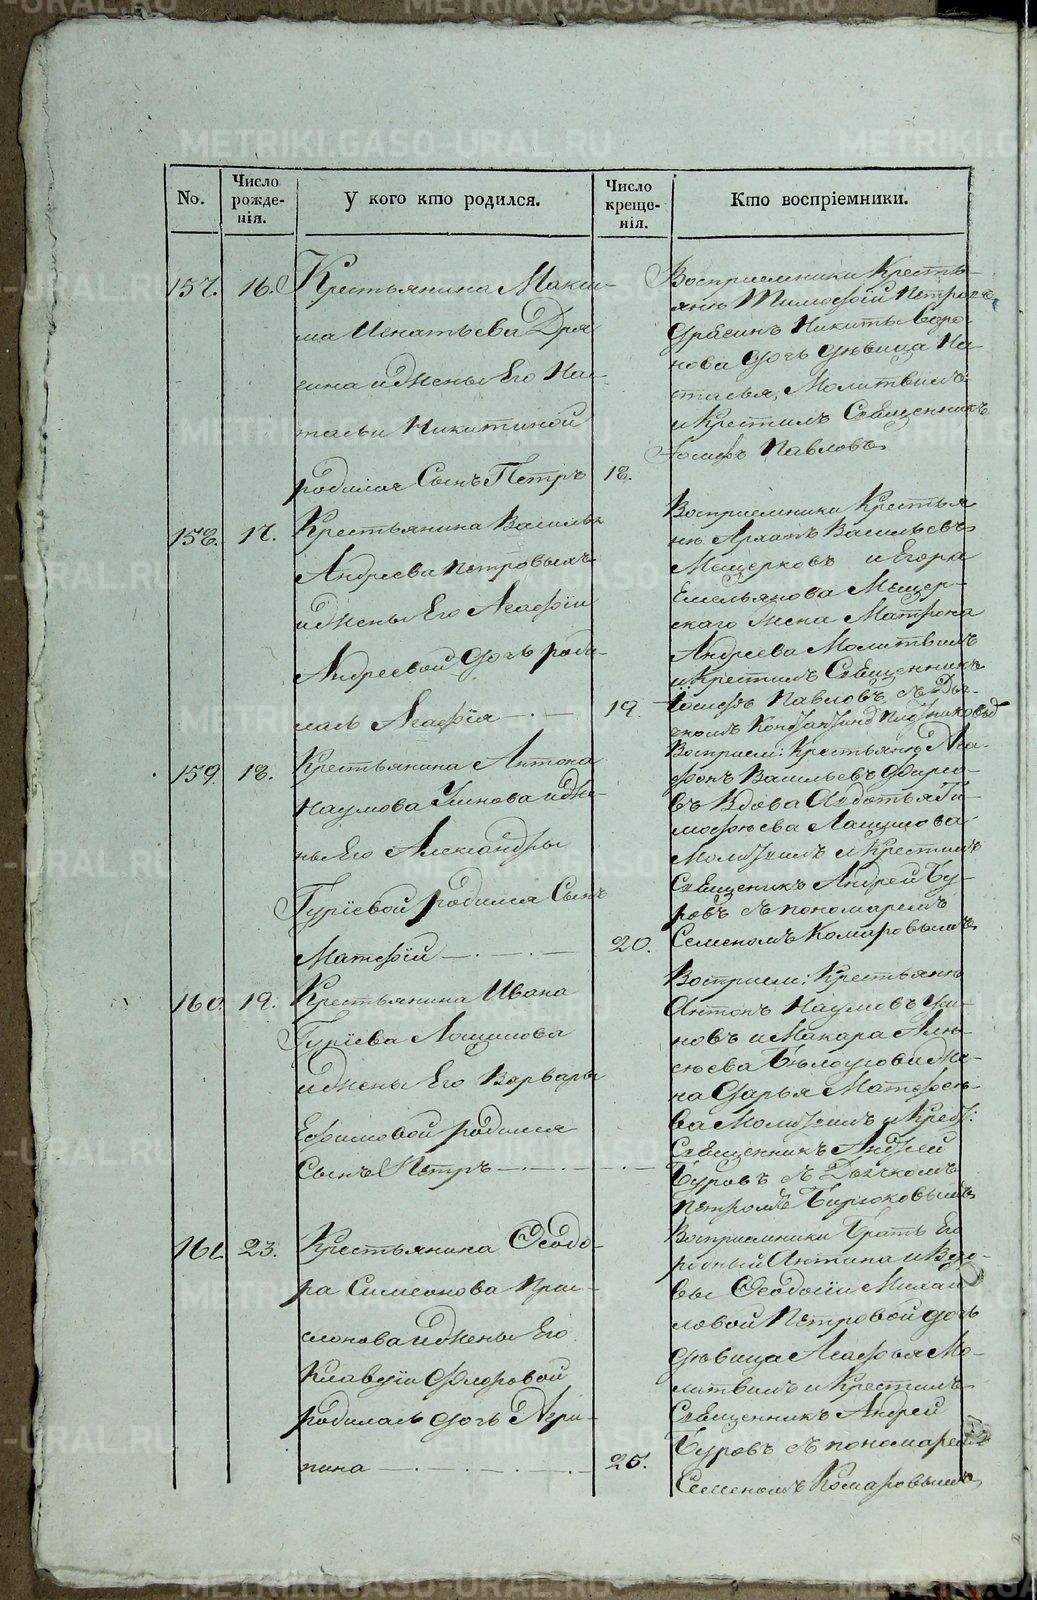 No.
Число рожде-
нія.
У кого кто родился.
Число креще-
нія.
Кто воспріемники.
157. 16. Крестьянина Макси-
ма Игнатьева
и жены Его На-
тальи Никитиной
родился Сынъ Петръ 18.
Восприемники Кресть-
янъ Тимофей Петровъ
Никиты
дочь девица На-
талья, Молитвилъ
и Крестилъ Священникъ
Іосифъ Павловъ
158. 17. Крестьянина
Андреева Петровыхъ
и жены Его Агафіи
Андреевой дочь роди-
лась Агафія 19.
Восприемники Крестья
нъ Васильевъ
Мещерковъ и Егора
Емельянова Мещер-
скаго жена Матрона
Андреева Молитвилъ
и Крестилъ Священникъ
Іосифъ Павловъ съ Дья-
чкомъ
159. 18. Крестьянина Антона
Наумова и же-
ны Его Александры
Гуріевой родился Сынъ
Матфій 20.
Восприем: Крестьянъ Ага-
фонъ Васильевъ
въ Вдова Авдотья Ти-
мофеева
Молитвилъ и Крестилъ
Священикъ Андрей Бу-
ровъ съ пономаремъ
Семеномъ Комаровымъ
160. 19. Крестьянина Ивана
Гуріева
и жены Его Варвары
Ефимовой родился
Сынъ Петръ
Восприем: Крестьянъ
Антонъ Наумовъ
новъ и Макара Але-
ксеева Белоусова же-
на Дарья Матфее-
ва Молитвилъ и Крест:
Священникъ Андрей
Буровъ съ Дьячкомъ
Петромъ Бирюковымъ
161. 23. Крестьянина Феодо-
ра Симеонова
и жены Его
Клавдіи Флоровой
родилась дочь Агри-
пина 25.
Восприемники Братъ Его
родный и Вдо-
вы Феодосіи Михаи
ловой Петровой дочь
девица Агафья Мо-
литвилъ и Крестилъ
Священникъ Андрей
Буровъ съ пономаремъ
Семеномъ Комаровымъ
METRIKI.GASO-URAL.RU